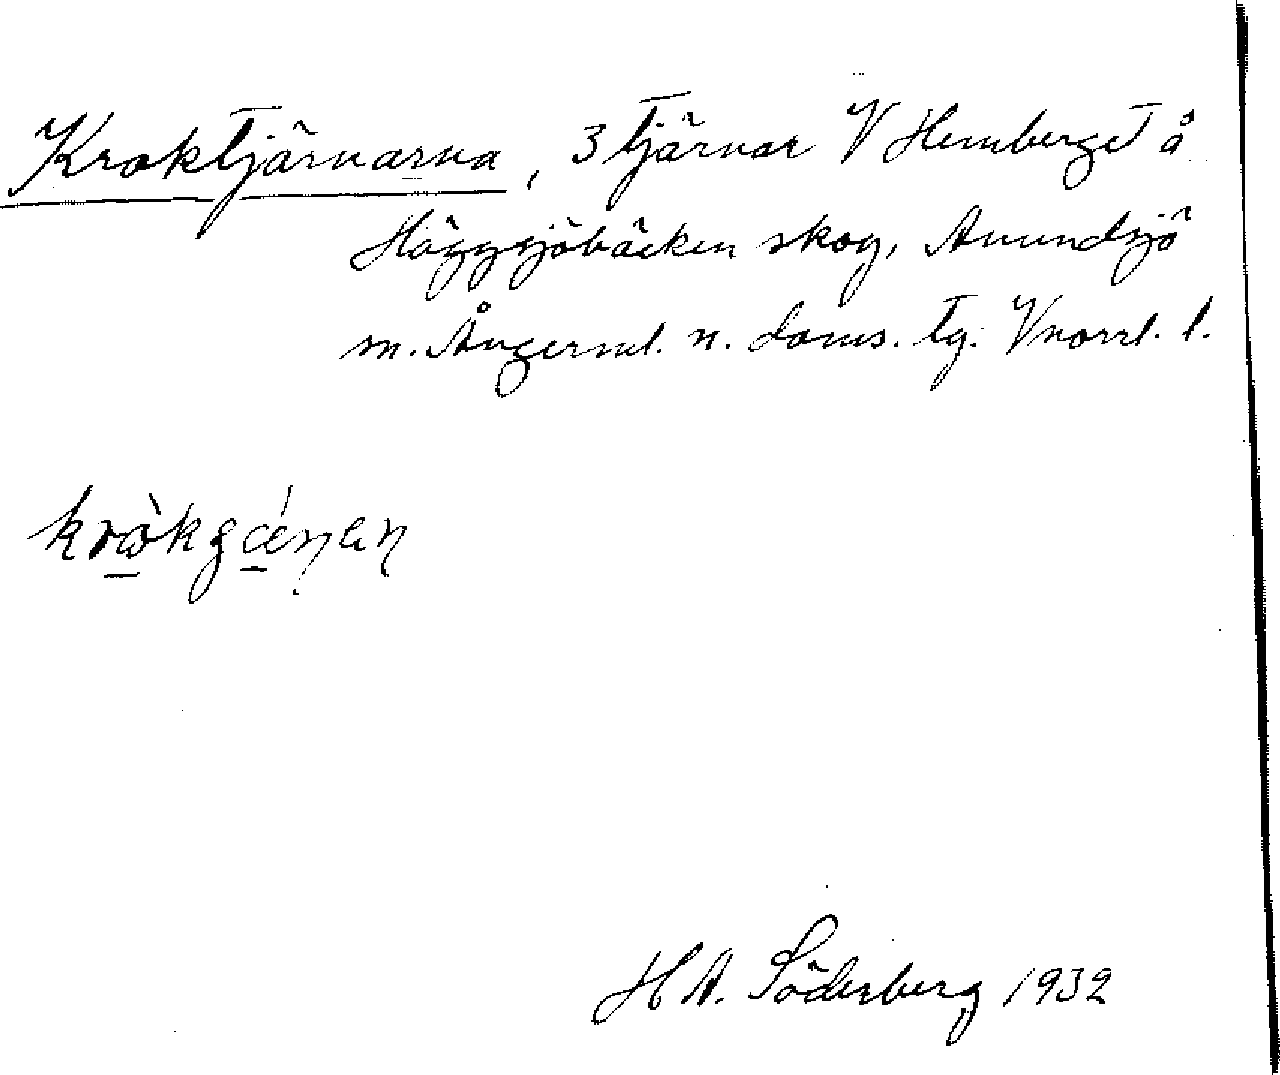 Kroktjärnarna, 3 tjärnar V Hemberget å
Häggsjöbäcken skog, Anundsjö
m. Ångerml. n. doms. tg. Vnorrl. l.
H A. Söderberg 1932